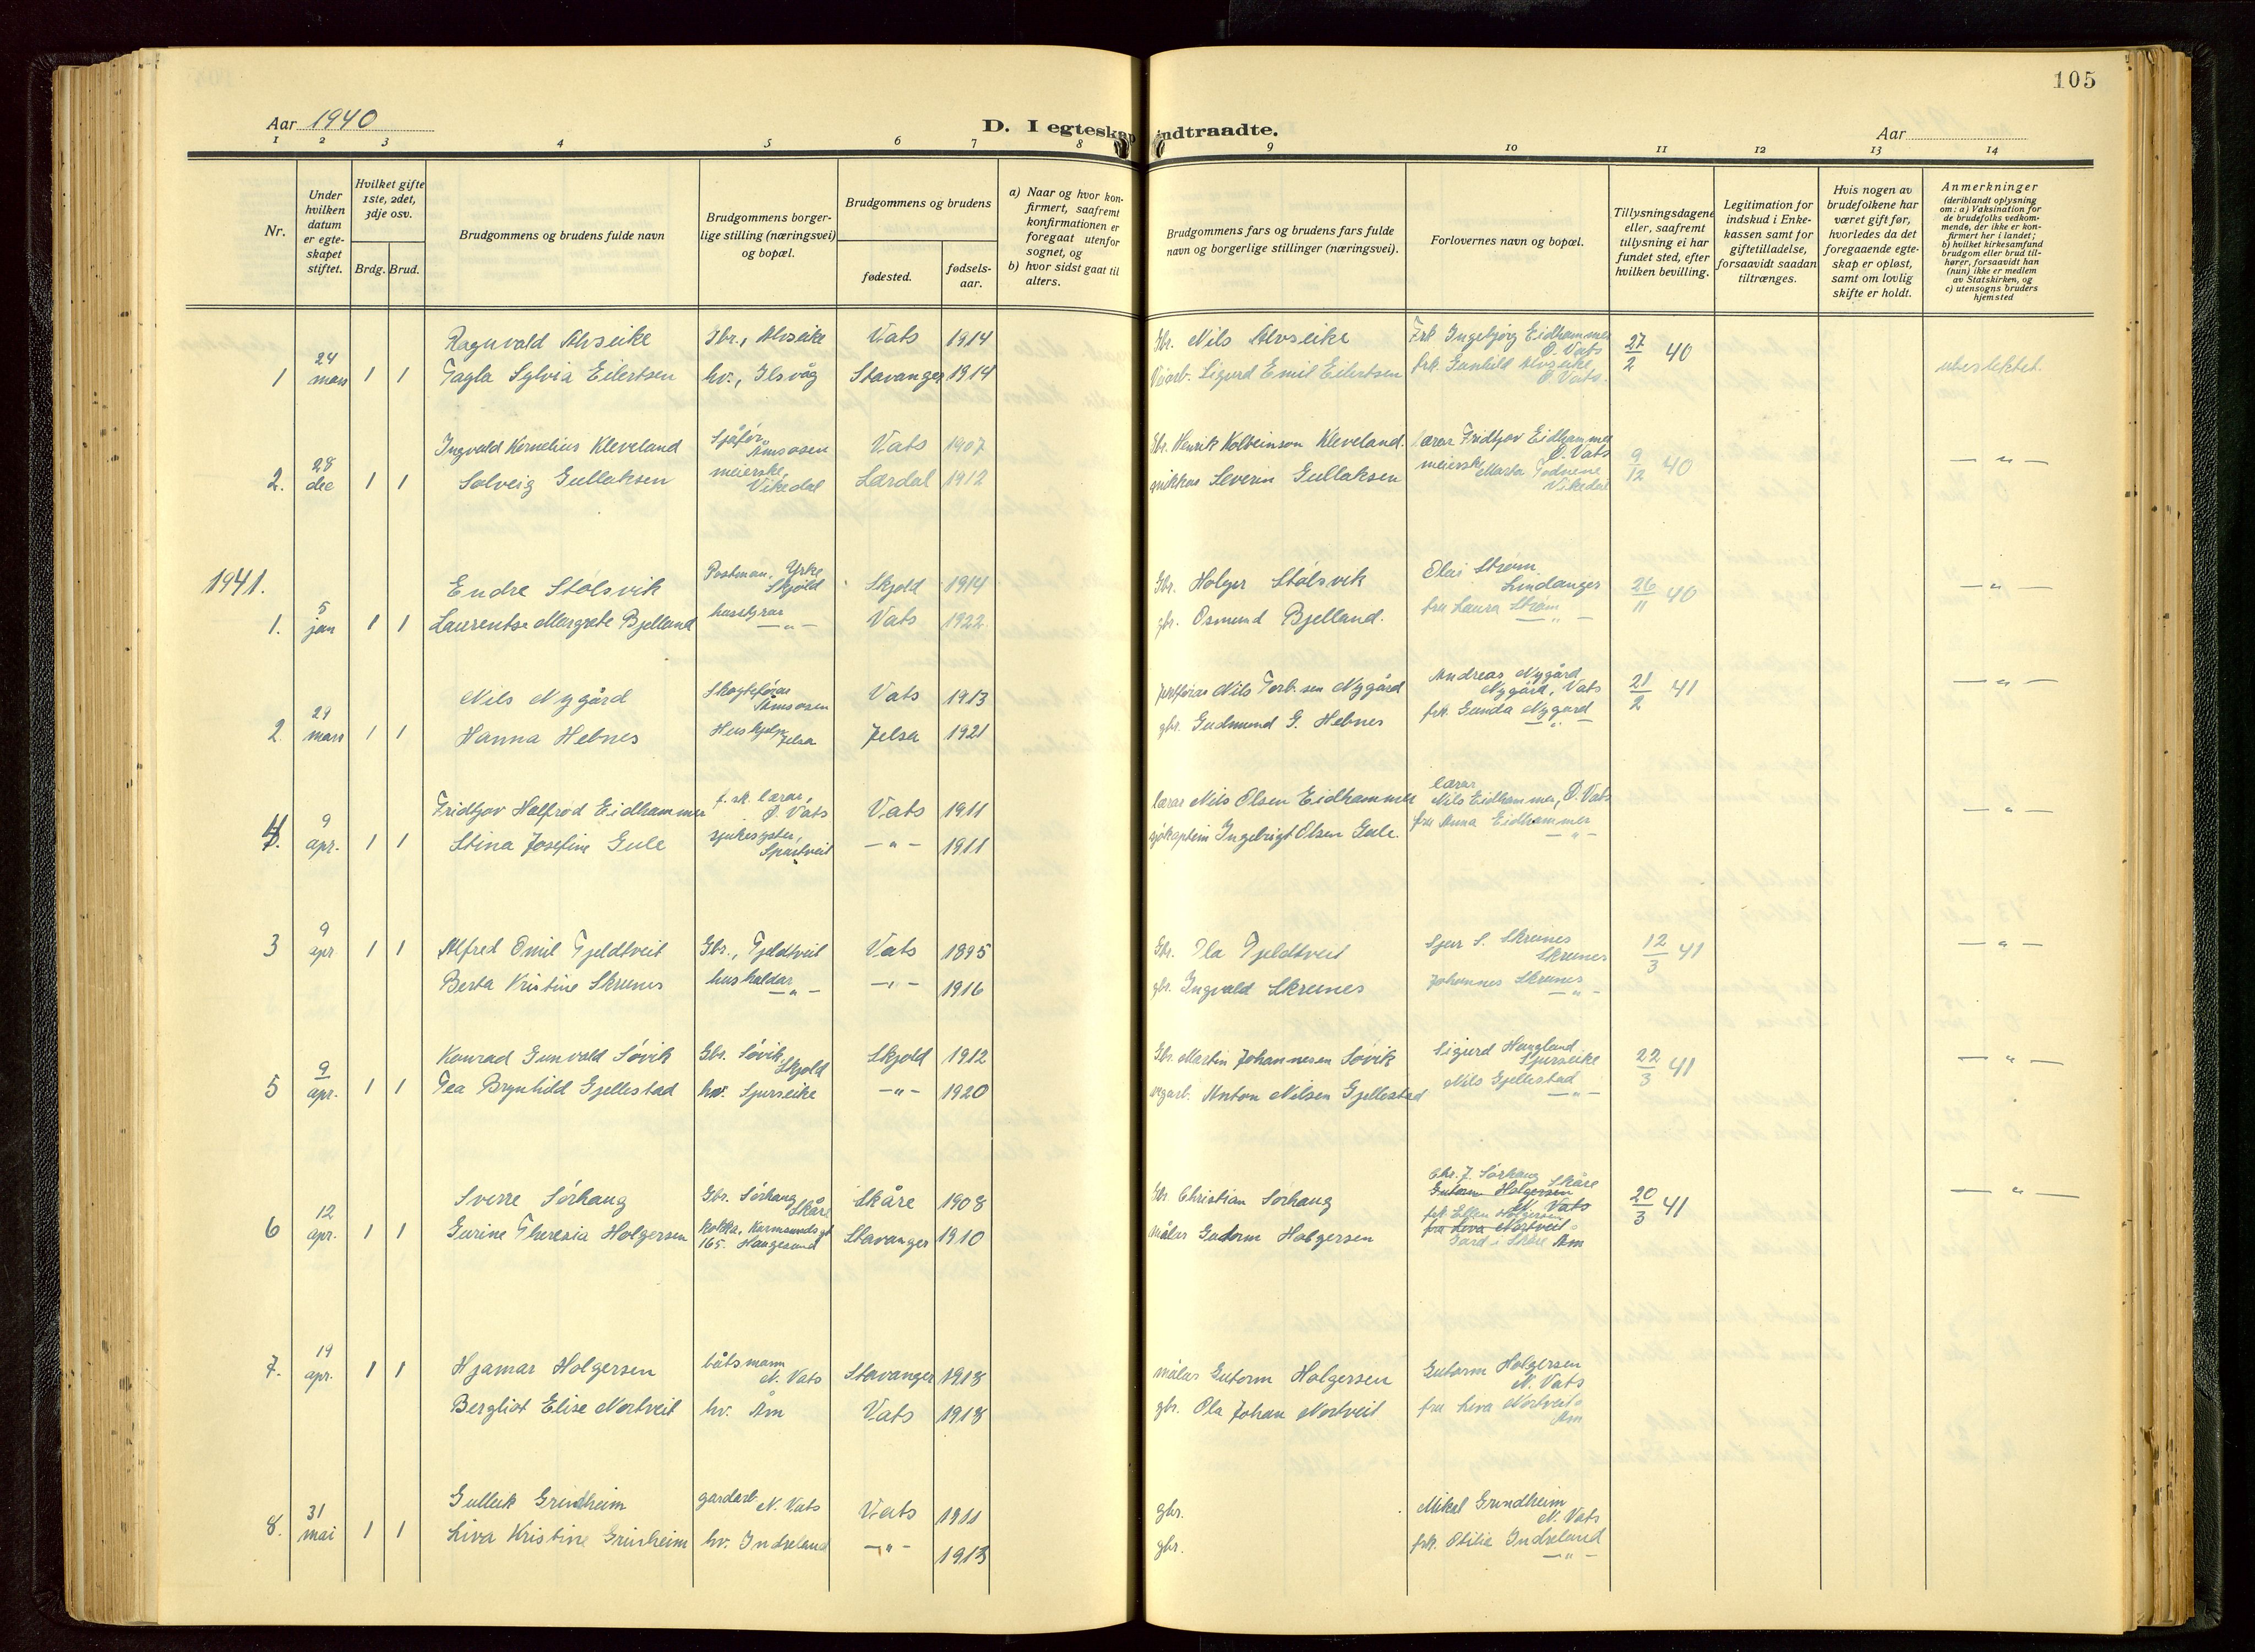 105
Aar 1940
D. I egteskap indtraadte.
Aar
1 2 3 4 5 6 7 8 9 10 11 12 13 14
Nr.
Under hvilken datum er egteskapet stiftet.
Hvilket gifte 1ste, 2det, 3dje osv.
Brdg. Brud.
Brudgommens og brudens fulde navn
Brudgommens borgerlige stilling (næringsvei) og bopæl.
Brudgommens og brudens
fødested.
fødselsaar.
a) Naar og hvor konfirmert, saafremt konfirmationen er foregaat utenfor sognet, og
b) hvor sidst gaat til alters.
Brudgommens fars og brudens fars fulde navn og borgerlige stillinger (næringsvei).
Forlovernes navn og bopæl.
Tillysningsdagene eller, saafremt tillysning ei har fundet sted, efter hvilken bevilling.
Legitimation for indskud i Enkekassen samt for giftetilladelse, forsaavidt saadan tiltrænges.
Hvis nogen av brudefolkene har været gift før, hvorledes da det foregaaende egteskap er opløst, samt om lovlig skifte er holdt.
Anmerkninger
(deriblandt oplysning om: a) Vaksination for de brudefolks vedkommende, der ikke er konfirmert her i landet;
b) hvilket kirkesamfund brudgom eller brud tilhører, forsaavidt han (hun) ikke er medlem av Statskirken, og
c) utensogns bruders hjemsted
Ragnvald Alvseike Gbr., Alvseike Vats 1914 Gbr. Nils Alvseike Frk Ingebjørg Eidhammer Ø. Vats 27/2 40
1 24 mars 1 1 Tagla Sylvia Eilertsen hv., Ilsvåg Stavanger 1914 Veiarb. Sigurd Emil Eilertsen frk. Gunhild Alvseike, Ø. Vats. ubeslektet.
Ingvald Kornelius Kleveland Sjåfør, Åmsosen Vats 1907 Gbr. Henrik Kolbeinson Kleveland. lærar Fridtjov Eidhammer Ø. Vats 9/12 40 — " —
2. 28 des 1 1 Solveig Gullaksen meierske, Vikedal Lærdal 1912 Severin Gullaksen meierske Marta Vikedal
1941.
Endre Stølsvik Postman. Yrke Skjold Skjold 1914 Gbr. Holger Stølsvik Olai Strøm Lindanger 26/11 40 — " —
1. 5 jan 1 1 Laurentse Margrete Bjelland — " — Vats 1922 gbr. Osmund Bjelland. fru Laura Strøm — " —
Nils Nygård Åmsosen Vats 1913 Nils Torb.sen Nygård Andreas Nygård Nygård, Vats 21/2 41 — " —
2 29 mars 1 1 Hanna Hebnes Hushjelp Jelsa Jelsa 1921 gbr. Gudmund G. Hebnes frk. Gunda Nygård — " —
Fridtjov Halfred Eidhammer f. sk. lærar, Ø. Vats Vats 1911 lærar Nils Olsen Eidhammer lærar Nils Eidhammer, Ø. Vats — " —
4. 9 apr. 1 1 Stina Josefine Gule sjukesyster, — " — 1911 sjøkaptein Ingebrigt Olsen Gule. fru Anna Eidhammer — " —
3 9 apr 1 1 Alfred Omil Fjeldtveit Gbr., Fjeldtveit Vats 1895 Gbr. Ola Fjeldtveit Sjur S. Skrunes Skrunes 12/3 41 — " —
Berta Kristine Skrunes hushaldar — " — — " — 1916 gbr. Ingvald Skrunes Johannes Skrunes — " —
Konrad Gunvald Søvik Gbr. Søvik, Skjold Skjold 1912 Gbr. Martin Johannesen Søvik Sigurd Haugland Sjurseike 22/3 41 — " —
5 9 apr. 1 1 Tea Brynhild Gjellestad hv. Sjurseike — " — 1920 vegarb. Anton Nilsen Gjellestad Nils Gjellestad — " —
Sverre Sørhaug Gbr. Sørhaug Skåre Skåre 1908 Gbr Christian Sørhaug Chr. J. Sørhaug Skåre Gutorm Holgersen N. Vats 20/3 41 — " —
6 12 apr. 1 1 Gurine Theresia Holgersen kokka, Karmsundsgt 165. Haugesund Stavanger 1910 målar Gutorm Holgersen frk Ellen Holgersen fru Liva Nortveit Gard i Skåre Åm
7. 19 apr. 1 1 Hjamar Holgersen båtsmann N. Vats Stavanger 1918 målar Gutorm Holgersen Gutorm Holgersen N. Vats
Bergliot Elise Nortveit hv. Åm Vats 1918 gbr. Ola Johan Nortveit fru Liva Nortveit Åm
Gulleik Grindheim gardarb. N. Vats Vats 1911 gbr. Mikal Grindheim N. Vats
8. 31 mai 1 1 Liva Kristine Grinheim hv. Indreland — " — 1913 gbr. frk. Otilia Indreland — " —